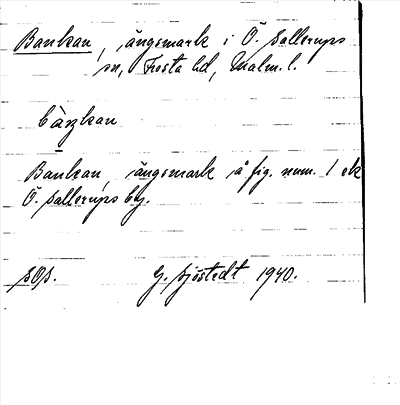 Bankan, ängsmark i Ö. Sallerups
sn, Frosta hd, Malm. l.
bàŋkan
Bankan, ängsmark å fig. num. 1 ek
Ö. Sallerups by.
G. Sjöstedt 1940.